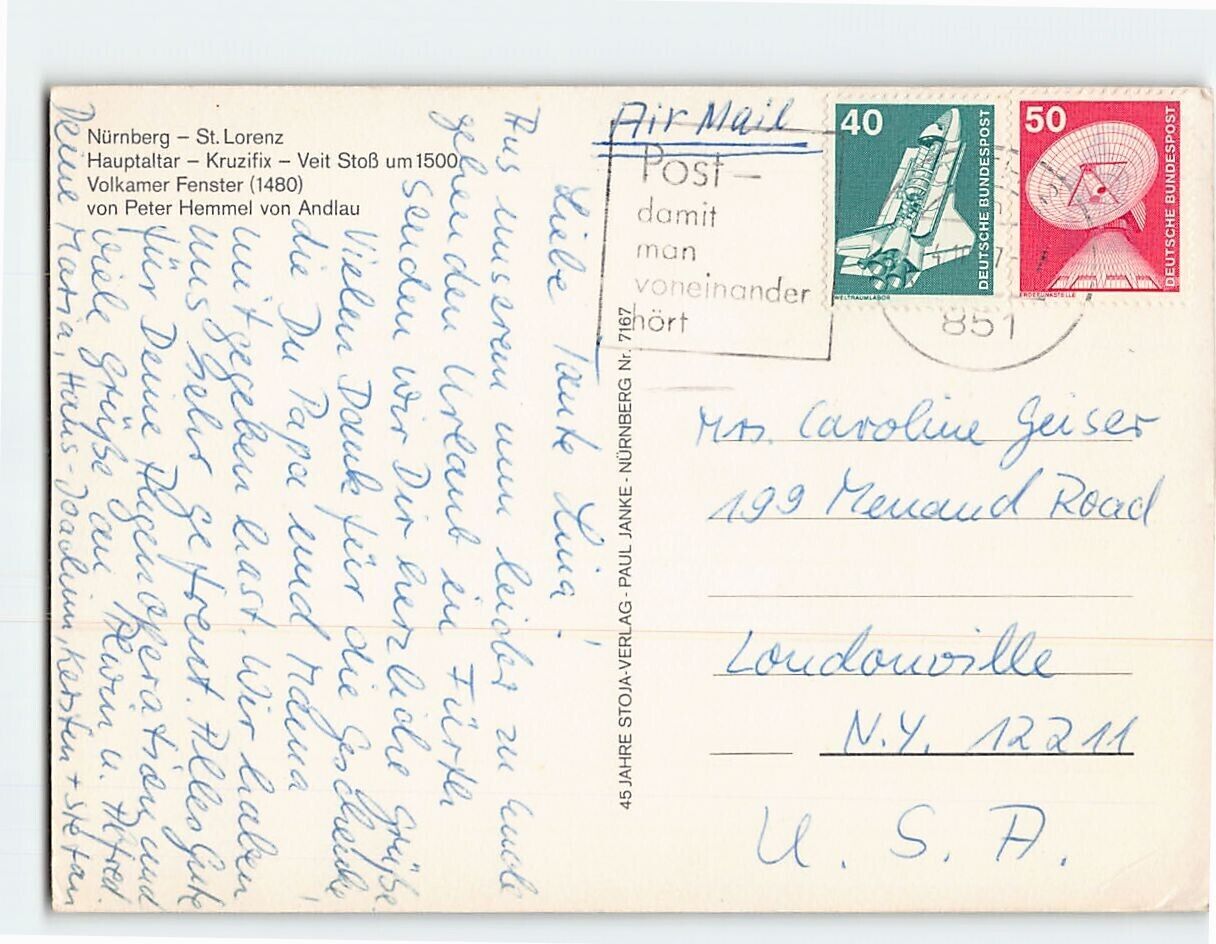 Nürnberg – St. Lorenz
Hauptaltar – Kruzifix – Veit Stoß um 1500
Volkamer Fenster (1480)
von Peter Hemmel von Andlau
Liebe Tante Lina!
Aus unserem nun leider zu Ende
gehenden Urlaub in Fürth
senden wir Dir herzliche Grüße.
Vielen Dank für die Geschenke,
die Du Papa und Mama
mitgegeben hast. Wir haben
uns sehr gefreut. Alles Gute
für Deine Augenoperation und
viele Grüße an Erwin u. Alfred.
Deine Maria, Hans-Joachim, Kersten + Stefan
45 JAHRE STOJA-VERLAG - PAUL JANKE - NÜRNBERG Nr. 7167
Air Mail
Post –
damit
man
voneinander
hört
40
DEUTSCHE BUNDESPOST
WELTRAUMLABOR
50
DEUTSCHE BUNDESPOST
ERDEFUNKSTELLE
851
Mrs. Caroline Geiser
199 Menand Road
Loudonville
N.Y. 12211
U. S. A.